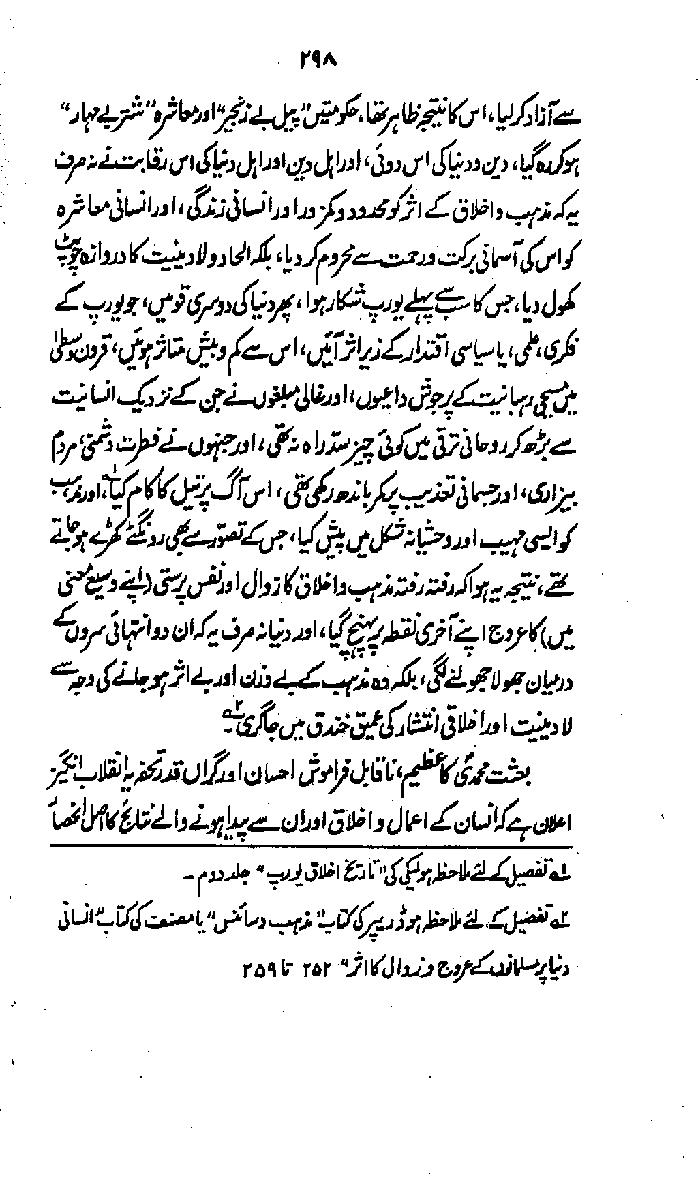 ۲۹۸
سے آزاد کر لیا، اس کا نتیجہ ظاہر تھا، حکومتیں "پیل بے زنجیر" اور معاشرہ "شتر بے مہار"
ہو کر رہ گیا، دین و دنیا کی اس دوئی، اور اہل دین اور اہل دنیا کی اس رقابت نے نہ صرف
یہ کہ مذہب و اخلاق کے اثر کو محدود و کمزور اور انسانی زندگی، اور انسانی معاشرہ
کو اس کی آسمانی برکت و رحمت سے محروم کر دیا، بلکہ الحاد و لادینیت کا دروازہ چوپٹ
کھول دیا، جس کا سب سے پہلے یورپ شکار ہوا، پھر دنیا کی دوسری قومیں، جو یورپ کے
فکری، علمی، یا سیاسی اقتدار کے زیر اثر آئیں، اس سے کم و بیش متاثر ہوئیں، قرون وسطیٰ
میں مسیحی رہبانیت کے پرجوش داعیوں، اور غالی مبلغوں نے جن کے نزدیک انسانیت
سے بڑھ کر روحانی ترقی میں کوئی چیز سد راہ نہ تھی، اور جنہوں نے فطرت دشمنی، مردم
بیزاری، اور جسمانی تعذیب پر کمر باندھ رکھی تھی، اس آگ پر تیل کا کام کیا،۱؎ اور مذہب
کو ایسی مہیب اور وحشیانہ شکل میں پیش کیا، جس کے تصور سے بھی رونگٹے کھڑے ہو جاتے
تھے، نتیجہ یہ ہوا کہ رفتہ رفتہ مذہب و اخلاق کا زوال اور نفس پرستی (اپنے وسیع معنی
میں) کا عروج اپنے آخری نقطہ پر پہنچ گیا، اور دنیا نہ صرف یہ کہ ان دو انتہائی سروں کے
درمیان جھولا جھولنے لگی، بلکہ وہ مذہب کے بے وزن اور بے اثر ہو جانے کی وجہ سے
لادینیت اور اخلاقی انتشار کی عمیق خندق میں جا گری۔۲؎
بعثت محمدی کا عظیم، ناقابل فراموش احسان اور گراں قدر تحفہ یہ انقلاب انگیز
اعلان ہے کہ انسان کے اعمال و اخلاق اور ان سے پیدا ہونے والے نتائج کا اصل انحصار
۱؎ تفصیل کے لئے ملاحظہ ہو لیکی کی "تاریخ اخلاق یورپ" جلد دوم۔
۲؎ تفصیل کے لئے ملاحظہ ہو ڈریپر کی کتاب "مذہب و سائنس" یا مصنف کی کتاب "انسانی
دنیا پر مسلمانوں کے عروج و زوال کا اثر" ۲۵۲ تا ۲۵۹